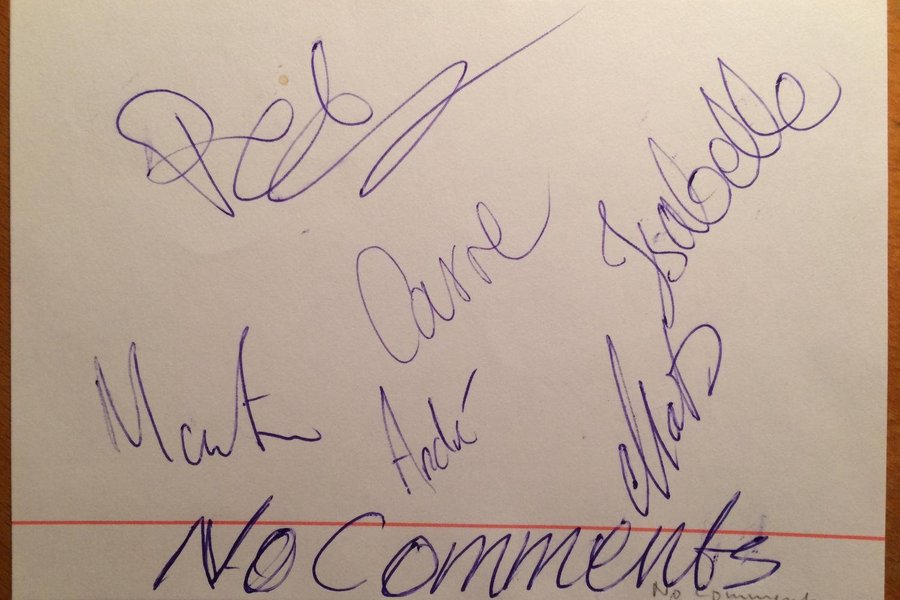 Isabelle
Carre
Martin
André
Mats
No Comments
No Comments